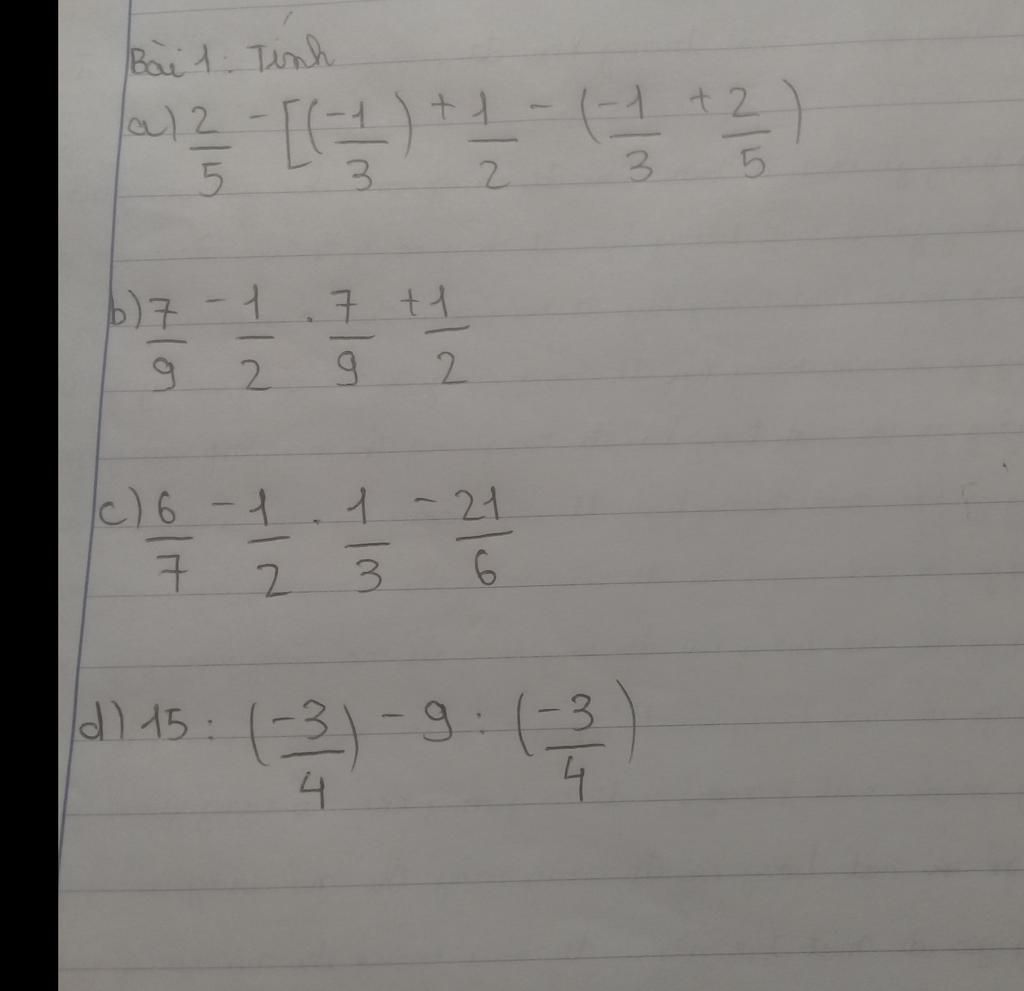 Bài 1: Tính
a) 2/5 - [(-1/3) + 1/2 - (-1/3 + 2/5)
b) 7/9 - 1/2 . 7/9 + 1/2
c) 6/7 - 1/2 . 1/3 - 21/6
d) 15 : (-3/4) - 9 : (-3/4)